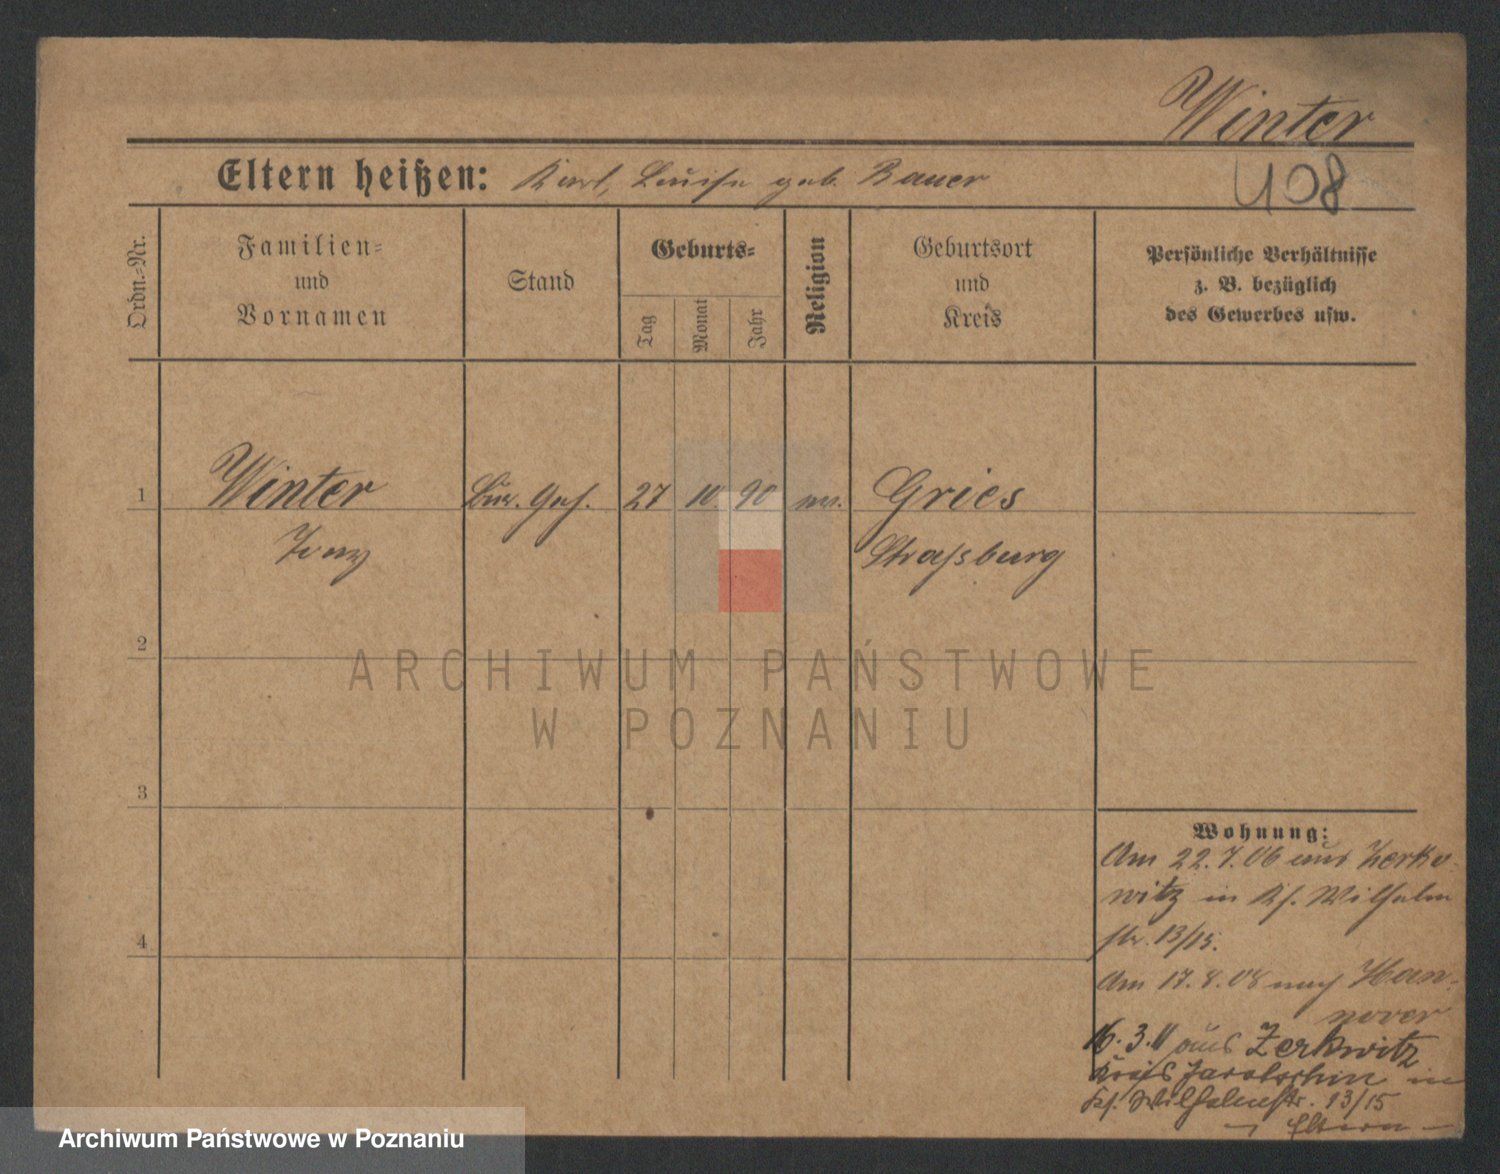 Winter
408
Eltern heißen: Karl, Luise geb. Bauer
Ordn.=Nr.
Familien=
und
Vornamen
Stand
Geburts=
Tag
Monat
Jahr
Religion
Geburtsort
und
Kreis
Persönliche Verhältnisse
z. B. bezüglich
des Gewerbes usw.
1
Winter
Geh.
27
10
90
ev.
Gries
Straßburg
2
3
4
Wohnung:
Am 22.7.06 aus Zerko-
witz in Ks. Wilhelm
str. 13/15.
Am 17.8.08 nach Han-
nover
16.3.11 aus Zerkwitz
Kreis Jarotschin in
Ks. Wilhelmstr. 13/15
Eltern
ARCHIWUM PAŃSTWOWE
W POZNANIU
Archiwum Państwowe w Poznaniu